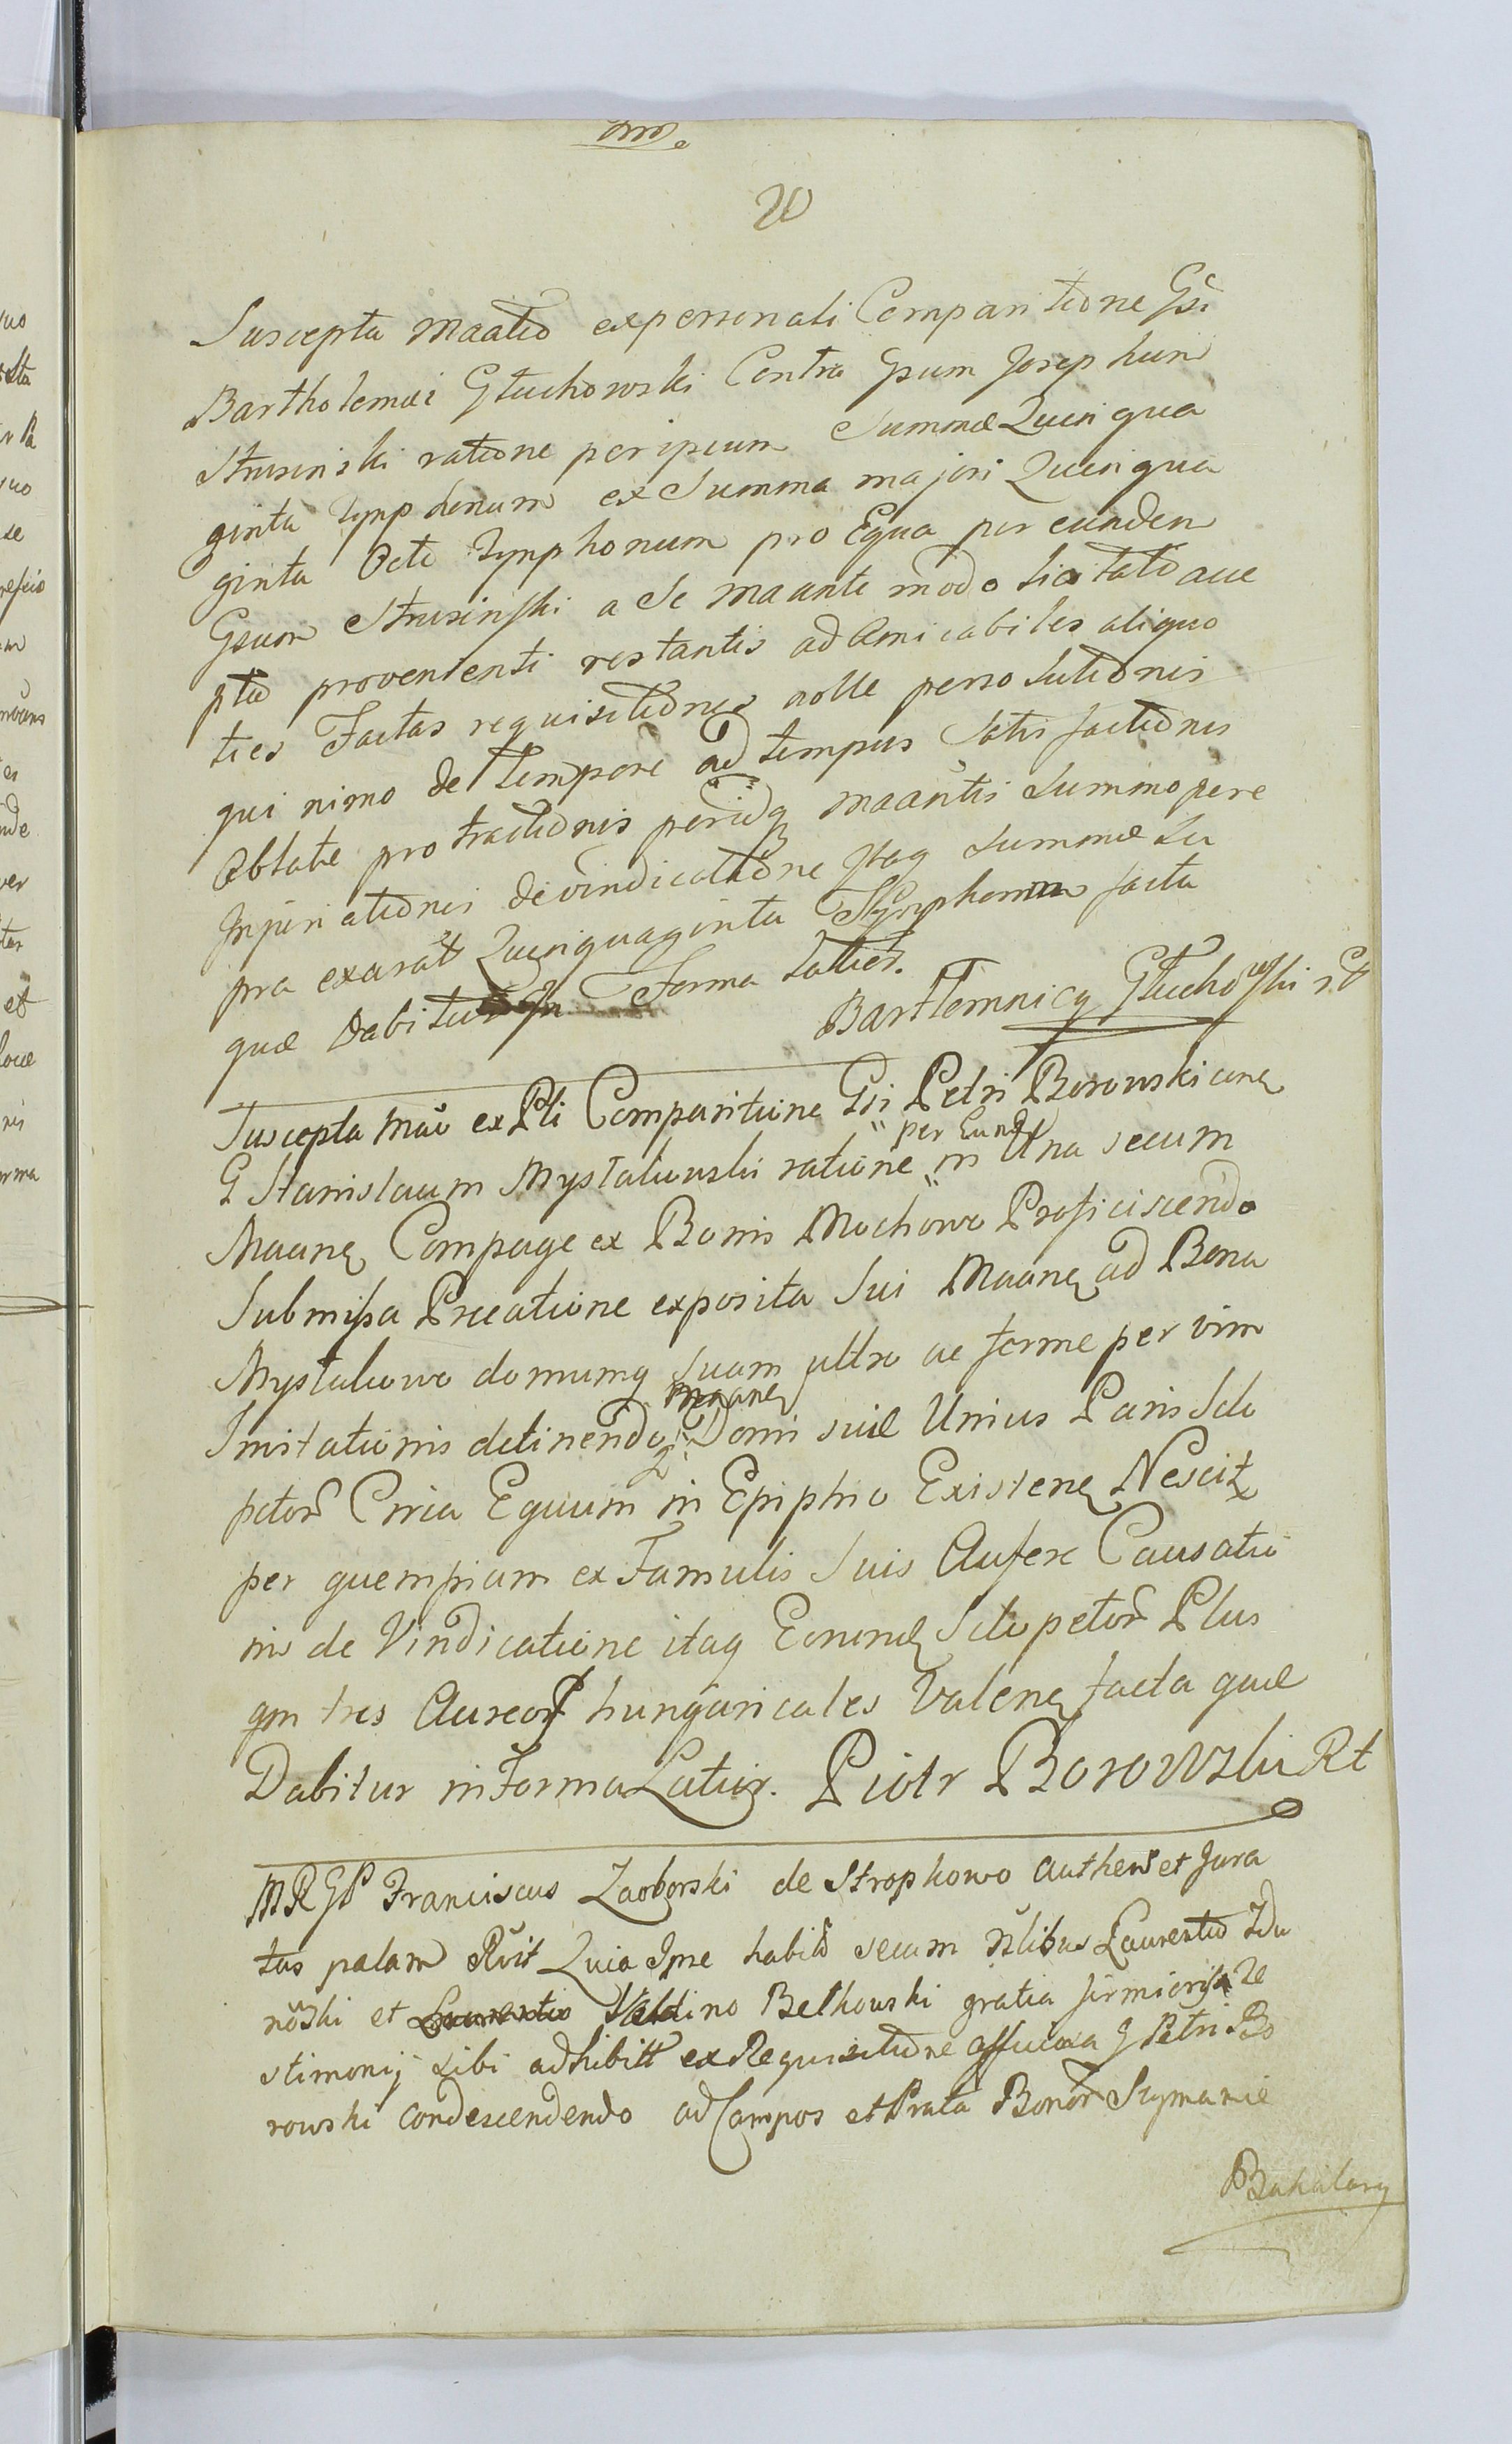 20
Suscepta Maatio ex personali Comparitione Gsi
Bartholomæi Głuchowski Contra Gsum Josephum
Strusinski ratione per ipsum Summæ Quinqua
ginta Tynphonum ex Summa majori Quinqua
ginta Octo Tynphonum pro Equa per eundem
Gsum Strusinski a Se Maante modo licitato acce
pta provenienti restantis ad Amicabiles aliquo
ties Factas requisitiones nolle persolutionis
qui nimo de Tempore ad tempus Satisfactionis
Oblatæ protractionis peridq Maantis Summopere
Injuriationis de vindicatione Itaq Summæ Su
pra exarat Quinquaginta Tynphonum facta
quæ Dabitur In Forma Latior.
Bartłomniey Głuchowski
Suscepta Mao ex Pli Comparitione Gsi Petri Borowski con
per Eund
G Stanislaum Mystkowski ratione in Una secum
Maane Compage ex Bonis Mochowo Proficiscendo
Submissa Precatione exposita Sui Maane ad Bona
Mystkowo domumq Suam ultro ac ferme per vim
Maane
Invitationis detinendo Domi suæ Unius Paris Sclo
petor Circa Equum in Epiphio Existen Nescit
per quempiam ex Famulis Suis Aufere Causatio
nis de Vindicatione itaq Eorund Sclopetor Plus
qm tres Aureor hungaricales Valen facta quæ
Dabitur in Forma Latior. Piotr Borowski Rt
M R GP Franciscus Zaborski de Stropkowo Authen et Jura
tus palam Rvit Quia Ipse habitis secum Nlibus Laurentio Zdu
noski et Laurentio Valdino Belkowski gratia firmioris Te
stimonij Sibi adhibitt ex Requisitione G Petri Bo
rowski condescendendo ad Campos et Prata Bonor Szymanie